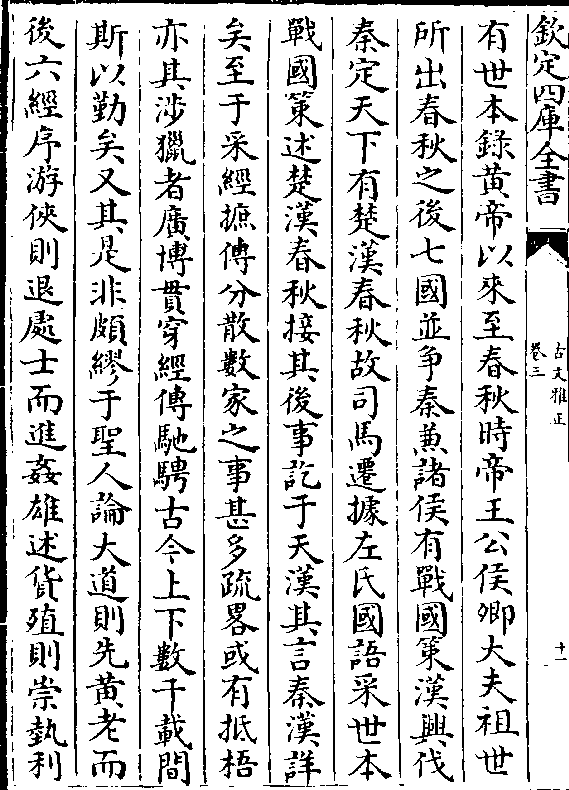 欽定四庫全書
古文雅正
卷三
十一
有世本錄黃帝以來至春秋時帝王公侯卿大夫祖世
所出春秋之後七國並爭秦兼諸侯有戰國策漢興伐
秦定天下有楚漢春秋故司馬遷據左氏國語采世本
戰國策述楚漢春秋接其後事訖于天漢其言秦漢詳
矣至于采經摭傳分散數家之事甚多疏畧或有抵梧
亦其涉獵者廣博貫穿經傳馳騁古今上下數千載間
斯以勤矣又其是非頗繆于聖人論大道則先黃老而
後六經序游俠則退處士而進姦雄述貨殖則崇埶利